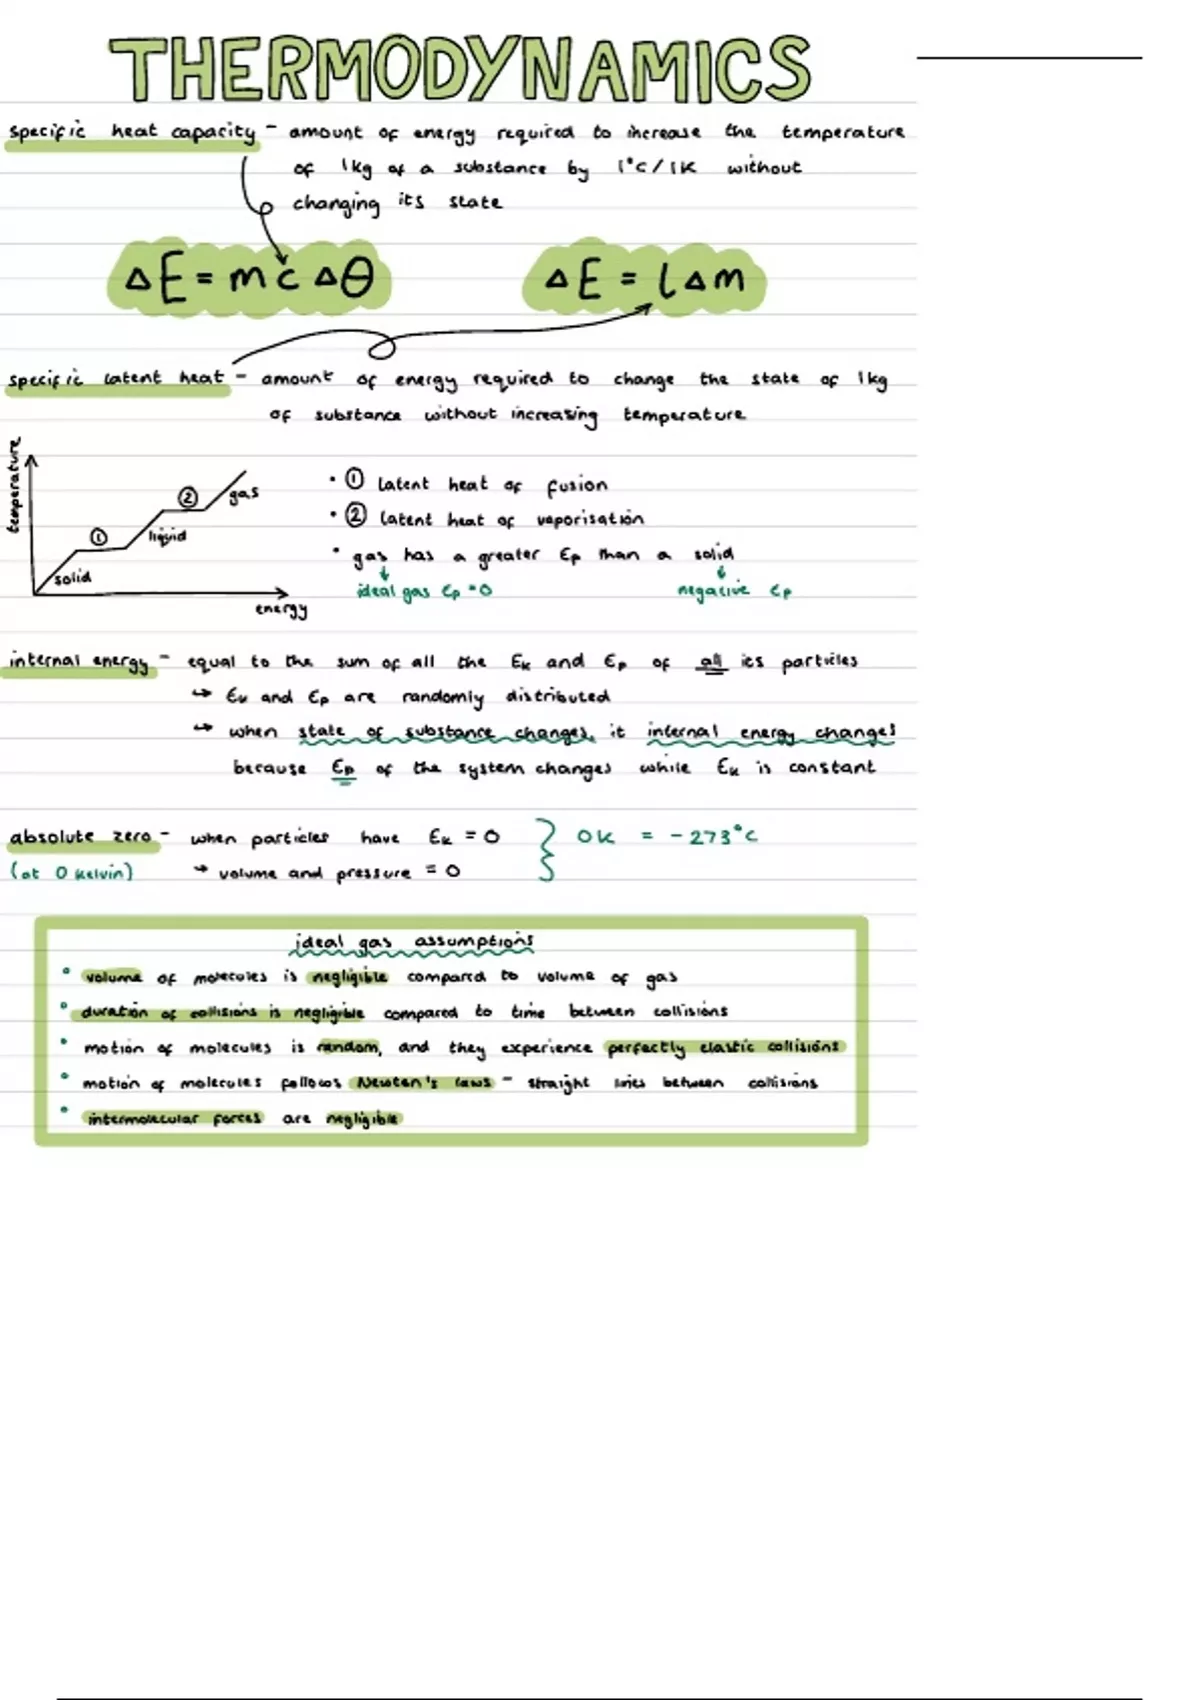 THERMODYNAMICS
specific heat capacity - amount of energy required to increase the temperature
of 1kg of a substance by 1°C/1K without
changing its state
ΔE = mcΔθ
ΔE = lΔm
specific latent heat - amount of energy required to change the state of 1kg
of substance without increasing temperature
temperature
solid
①
liquid
②
gas
energy
• ① latent heat of fusion
• ② latent heat of vaporisation
• gas has a greater Ep than a solid
↓ ↓
ideal gas Ep = 0 negative Ep
internal energy - equal to the sum of all the Ek and Ep of all its particles
↪ Ek and Ep are randomly distributed
↪ when state of substance changes, it internal energy changes
because Ep of the system changes while Ek is constant
absolute zero - when particles have Ek = 0 } 0K = -273°C
(at 0 kelvin) ↪ volume and pressure = 0
ideal gas assumptions
• volume of molecules is negligible compared to volume of gas
• duration of collisions is negligible compared to time between collisions
• motion of molecules is random, and they experience perfectly elastic collisions
• motion of molecules follows Newton's laws - straight lines between collisions
• intermolecular forces are negligible